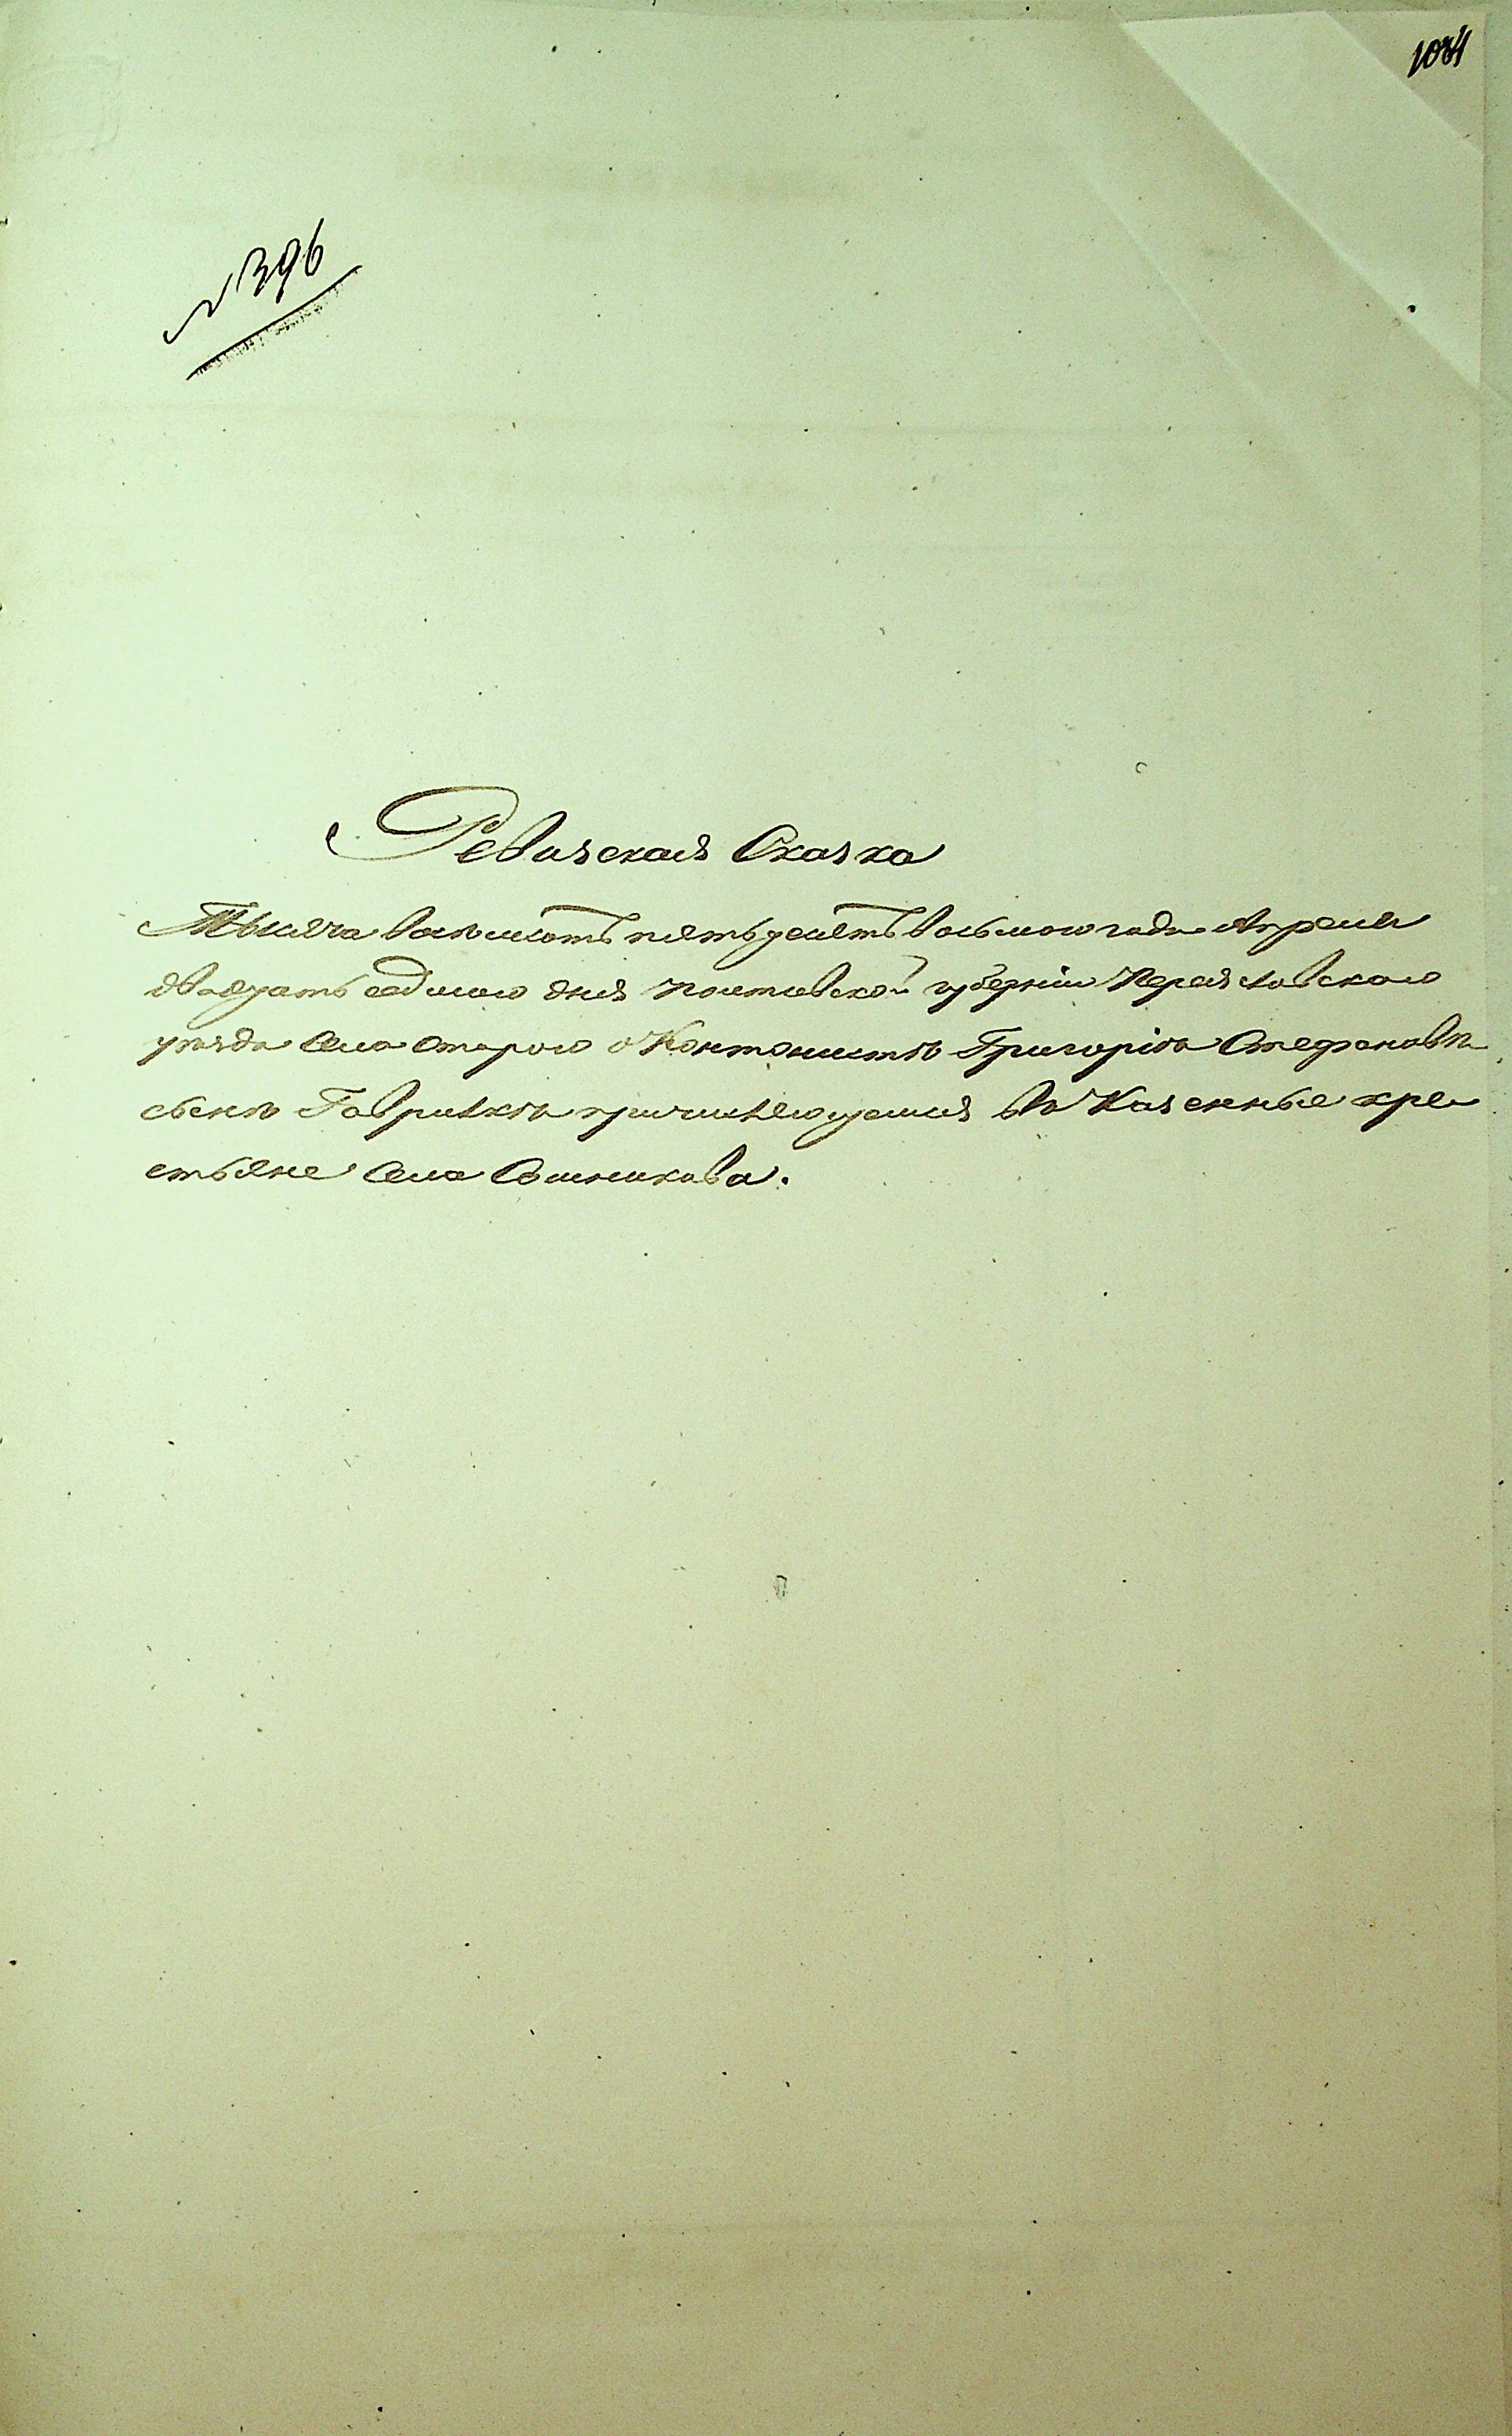 1034
№ 396
Ревизская Сказка
Тысяча восемьсотъ пятьдесятъ восьмого года Апреля
двадцать седмого дня Полтавской губерніи Переяславского
уѣзда села Старого о Кантонистѣ Григоріѣ Стефановѣ
сынѣ Гавришкѣ причисляющемся въ Казенные кре
стьяне села Сошникова.